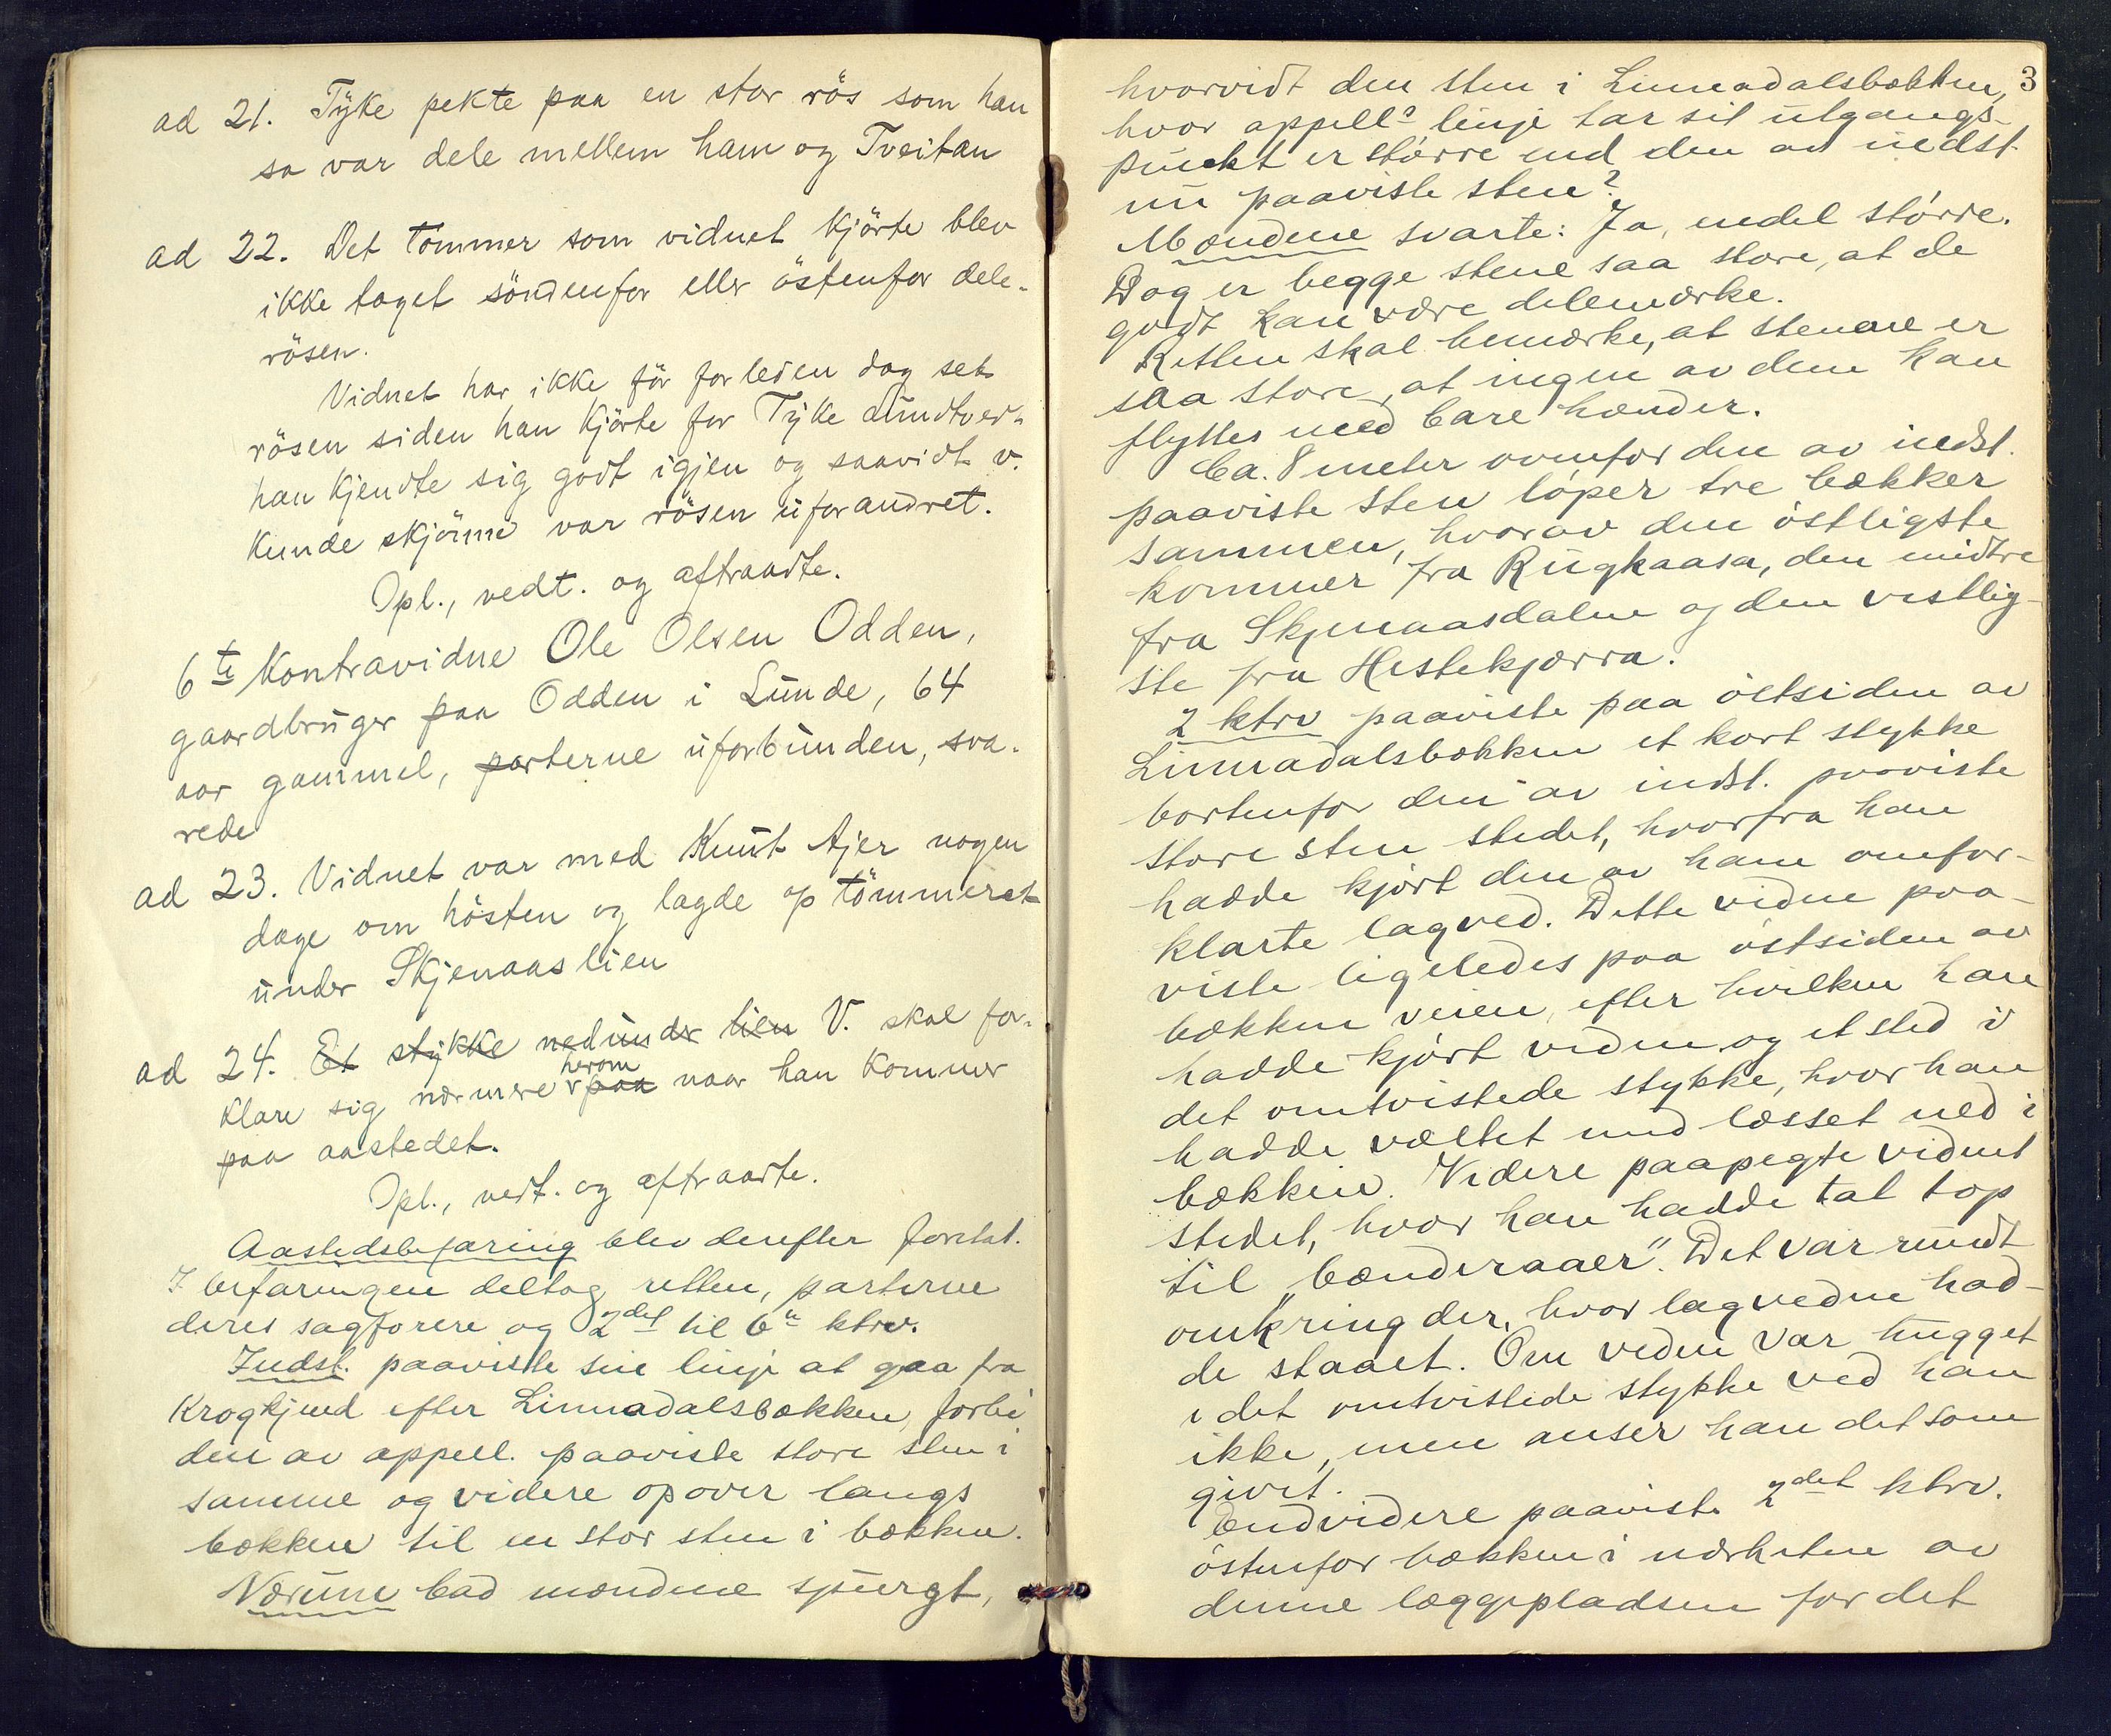 ad 21. Tyke pekte paa en stor rös som han
sa var dele mellem ham og Tveitan
ad 22. Det tömmer som vidnet kjörte blev
ikke taget söndenfor eller östenfor dele-
rösen.
Vidnet har ikke för forleden dag set
rösen siden han kjörte for Tyke
han kjendte sig godt igjen og saavidt v.
kunde skjönne var rösen uforandret.
Opl., vedt. og aftraadte.
6te Kontravidne Ole Olsen Odden,
gaardbruger paa Odden i Lunde, 64
aar gammel, parterne uforbunden, sva-
rede
ad 23. Vidnet var med Knut Ajer nogen
dage om hösten og lagde op tömmeret
under Skjenaaslien
ad 24. Et stykke nedunder lien V. skal for-
klare sig nærmere herom paa naar han kommer
paa aastedet.
Opl., vedt. og aftraadte.
Aastedsbefaring blev derefter foretat.
I befaringen deltog retten, parterne
deres sagförere og 2det til 6te ktrv.
Indst. paaviste sin linje at gaa fra
Krogkjend efter Linnadalsbækken, forbi
den av appell. paaviste store sten i
samme og videre opover langs
bækken til en stor sten i bækken.
Nærum bad mændene spurgt,
3
hvorvidt den sten i Linnadalsbækken,
hvor appells linje tar sit utgangs-
punkt er större end den av indst.
nu paaviste sten?
Mændene svarte: Ja, endel större.
Dog er begge stene saa store, at de
godt kan være delemærke.
Retten skal bemærke, at stenene er
saa store, at ingen av dem kan
flyttes med bare hænder.
Ca. 8 meter ovenfor den av indst.
paaviste sten löper tre bækker
sammen, hvorav den östligste
kommer fra Rugkaasa, den midtre
fra Skjenaasdalen og den vestlig-
ste fra Hestekjærra.
2 ktrv paaviste paa östsiden av
Linnadalsbækken et kort stykke
bortenfor den av indst. paaviste
store sten stedet, hvorfra han
hadde kjört den av ham omfor-
klarte lagved. Dette vidne paa-
viste ligeledes paa östsiden av
bækken veien, efter hvilken han
hadde kjört veden og et sted i
det omtvistede stykke, hvor han
hadde væltet med læsset ned i
bækken. Videre paapegte vidnet
stedet, hvor han hadde tat top
til "bænderaaer". Det var rundt
omkring der, hvor lagvedne had-
de staaet. Om veden var hugget
i det omtvistede stykke ved han
ikke, men anser han det som
givet.
Endvidere paaviste 2det ktrv.
östenfor bækken i nærheten av
denne læggepladsen for det